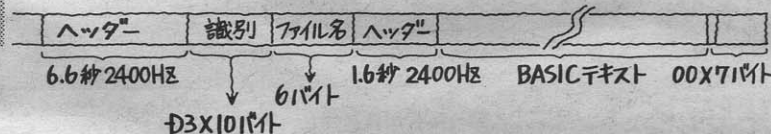 ヘッダー 識別 ファイル名 ヘッダー
6.6秒 2400HZ 6バイト 1.6秒 2400HZ BASICテキスト 00X7バイト
D3X10バイト